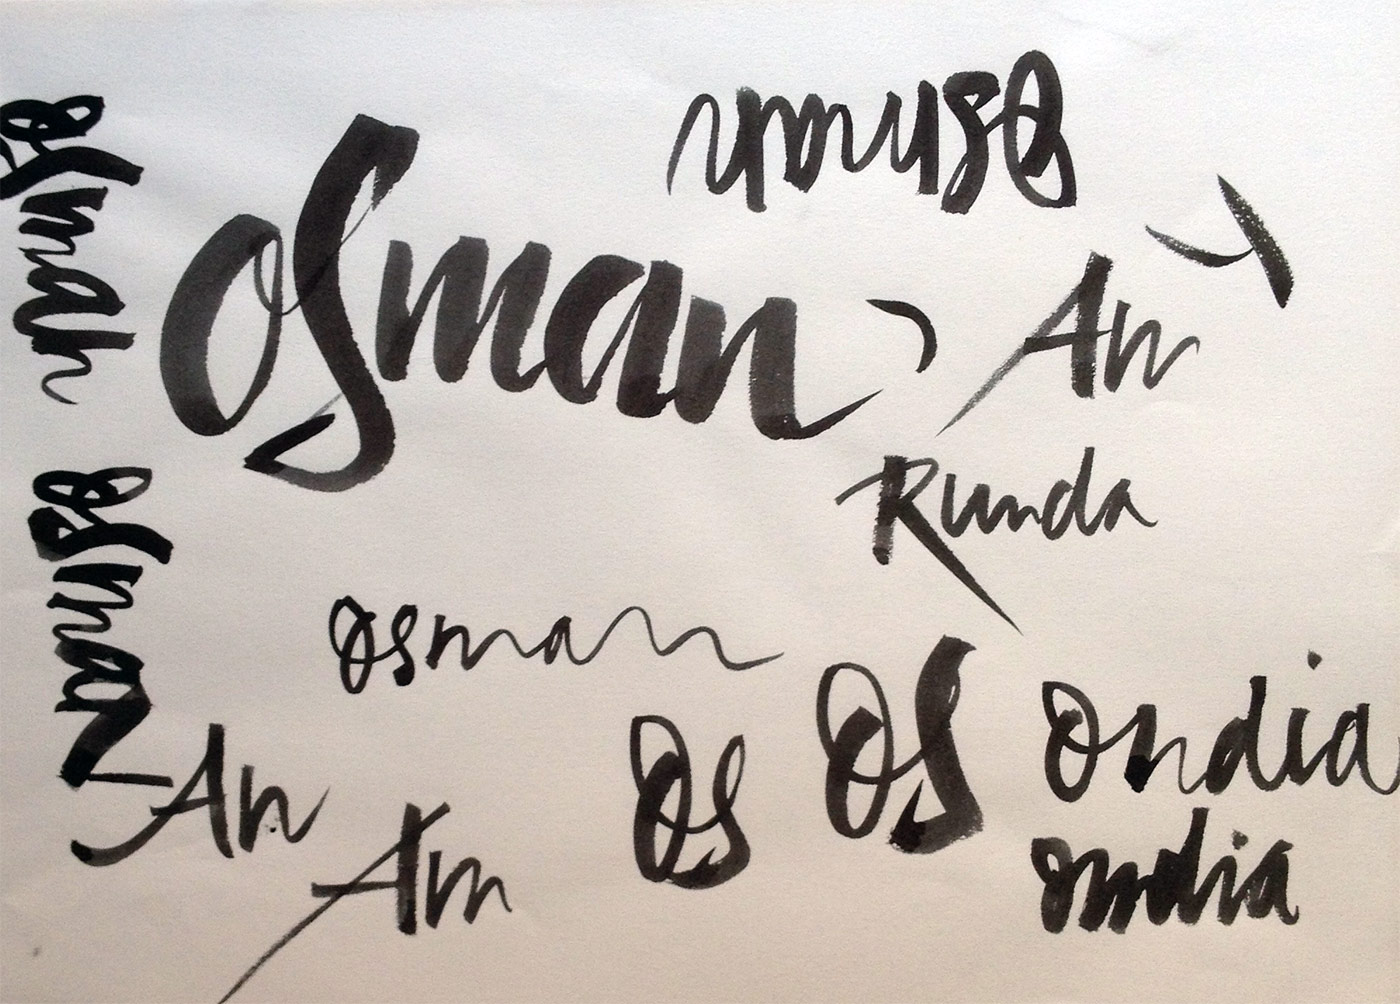 osman
osman
osman
An
Runda
osman
osman
An
Os
Os
ondia
An
ondia